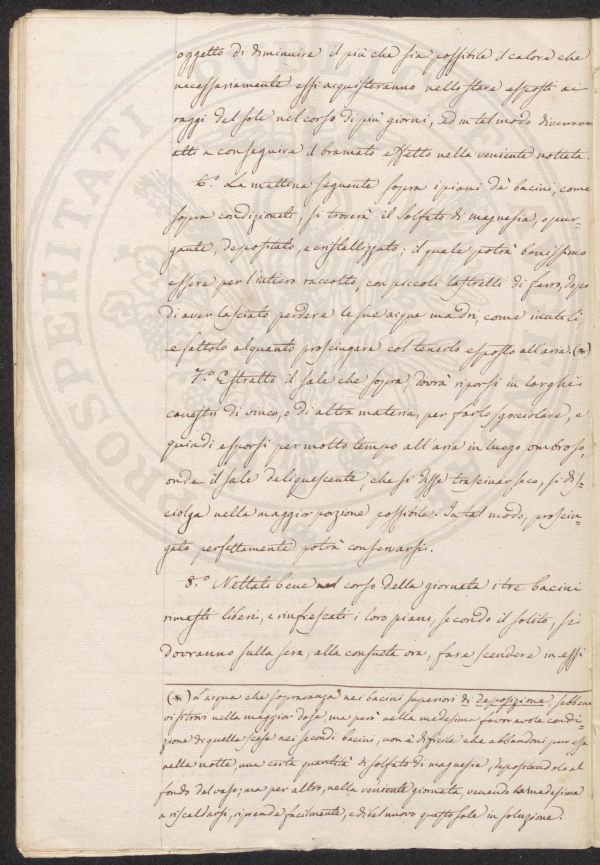 oggetto di diminuire il più che sia possibile il calore che
necessariamente essi acquisteranno nello stare esposti ai
raggi del sole nel corso di più giorni, ed in tal modo diverranno
atti a conseguire il bramato effetto nella veniente nottata.
6.° La mattina seguente sopra i piani dè bacini, come
sopra condizionati, si troverà il solfato di magnesia, o pur-
gante, depositato, e cristallizzato; il quale potrà benissimo
essere per l'intiero raccolto, con piccoli rastrelli di ferro, dopo
di aver lasciato perdere le sue acque madri, come inutili
e fattolo alquanto prosciugare col tenerlo esposto all'aria. (*)
7.° Estratto il sale che sopra dovrà riporsi in larghi
canestri di vinco, o di altra materia, per farlo sgocciolare, e
quindi esporsi per molto tempo all'aria in luogo ombroso,
onde il sale deliquescente, che si disse trascinar seco, si dis-
ciolga nella maggior porzione possibile. In tal modo, prosciu-
gato perfettamente potrà conservarsi.
8.° Nettati bene nel corso della giornata i tre bacini
rimasti liberi, e rinfrescati i loro piani, secondo il solito, si
dovranno sulla sera, alla consueta ora, fare scendere in essi
(*) L'acqua che sopravanza nei bacini superiori di deposizione, sebbene
vi si trovi nella maggior dose, ma però nella medesima favorevole condi-
zione di quella scesa nei secondi bacini, non è difficile che abbandoni pur essa
nella notte, una certa quantità di solfato di magnesia, depositandolo al
fondo del vaso; ma per altro, nella veniente giornata, venendo la medesima
a riscaldarsi, riprende facilmente, e di bel nuovo questo sale in soluzione.
PROSPERITATI